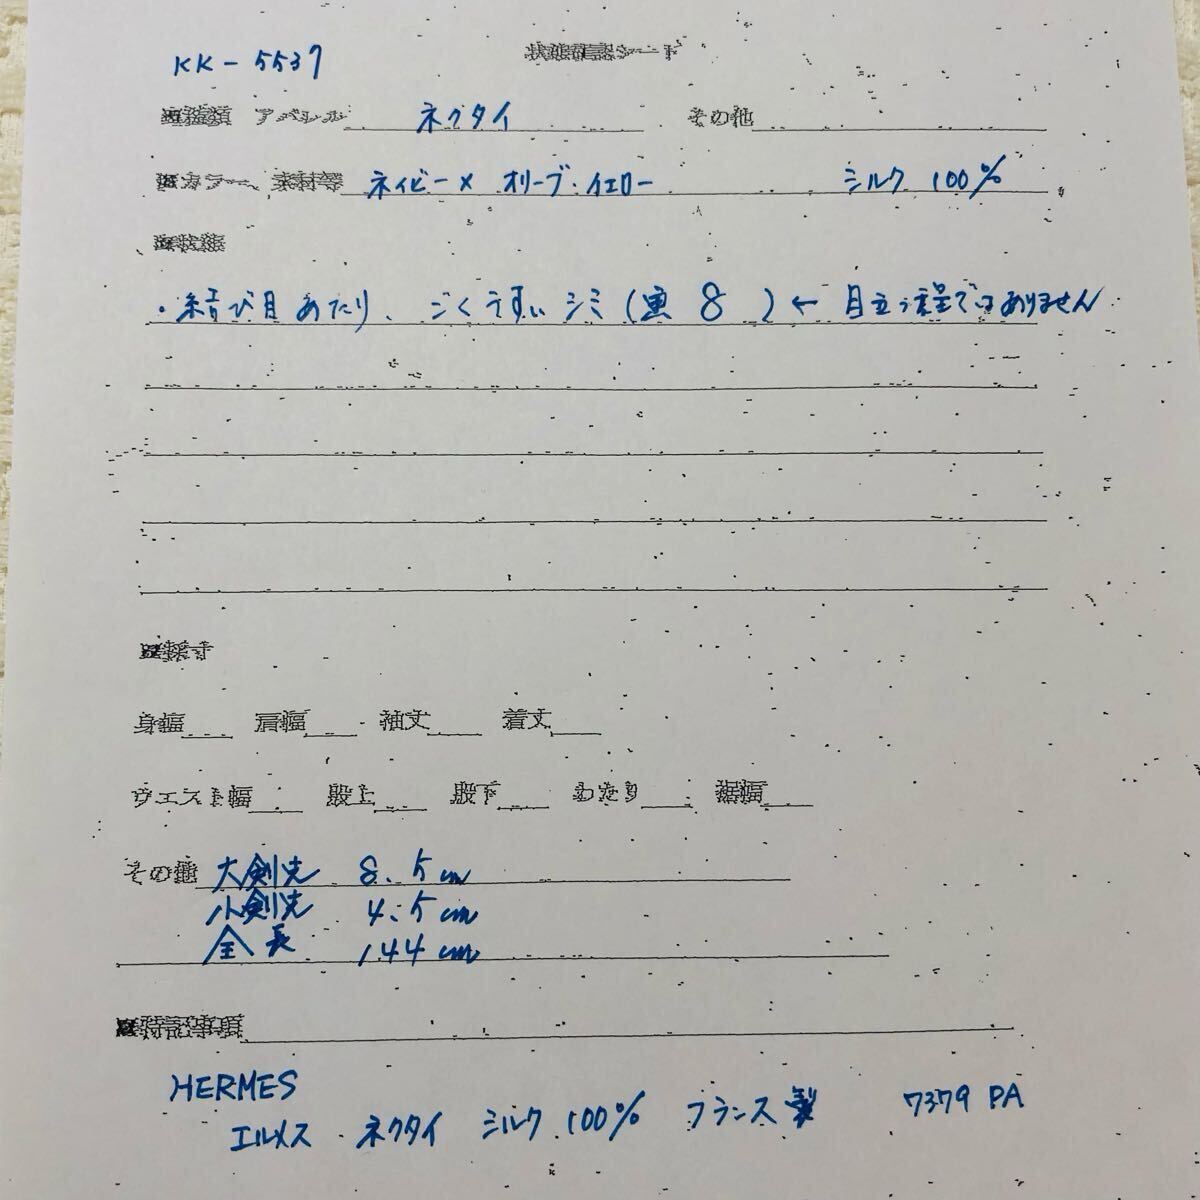 KK-5537
状態確認シート
■種類 アパレル ネクタイ その他
■カラー、素材等 ネイビー× オリーブ・イエロー シルク 100%
■状態
・結び目あたり、ごくうすいシミ(画 8 )← 目立つ程ではありません
■採寸
身幅 肩幅 袖丈 着丈
ウエスト幅 股上 股下 わたり 裾幅
その他 大剣先 8.5cm
小剣先 4.5cm
全長 144cm
■特記事項
HERMES
エルメス ネクタイ シルク 100% フランス製 7379 PA